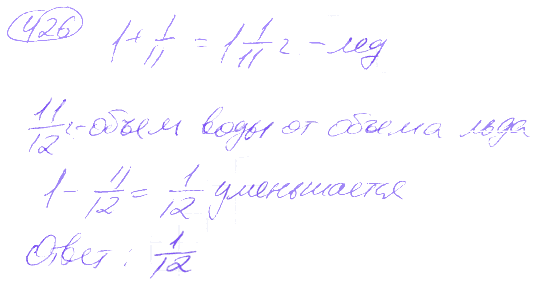 426
1 + 1/11 = 1 1/11 г - лед
11/12 г - объем воды от объема льда
1 - 11/12 = 1/12 уменьшается
Ответ: 1/12